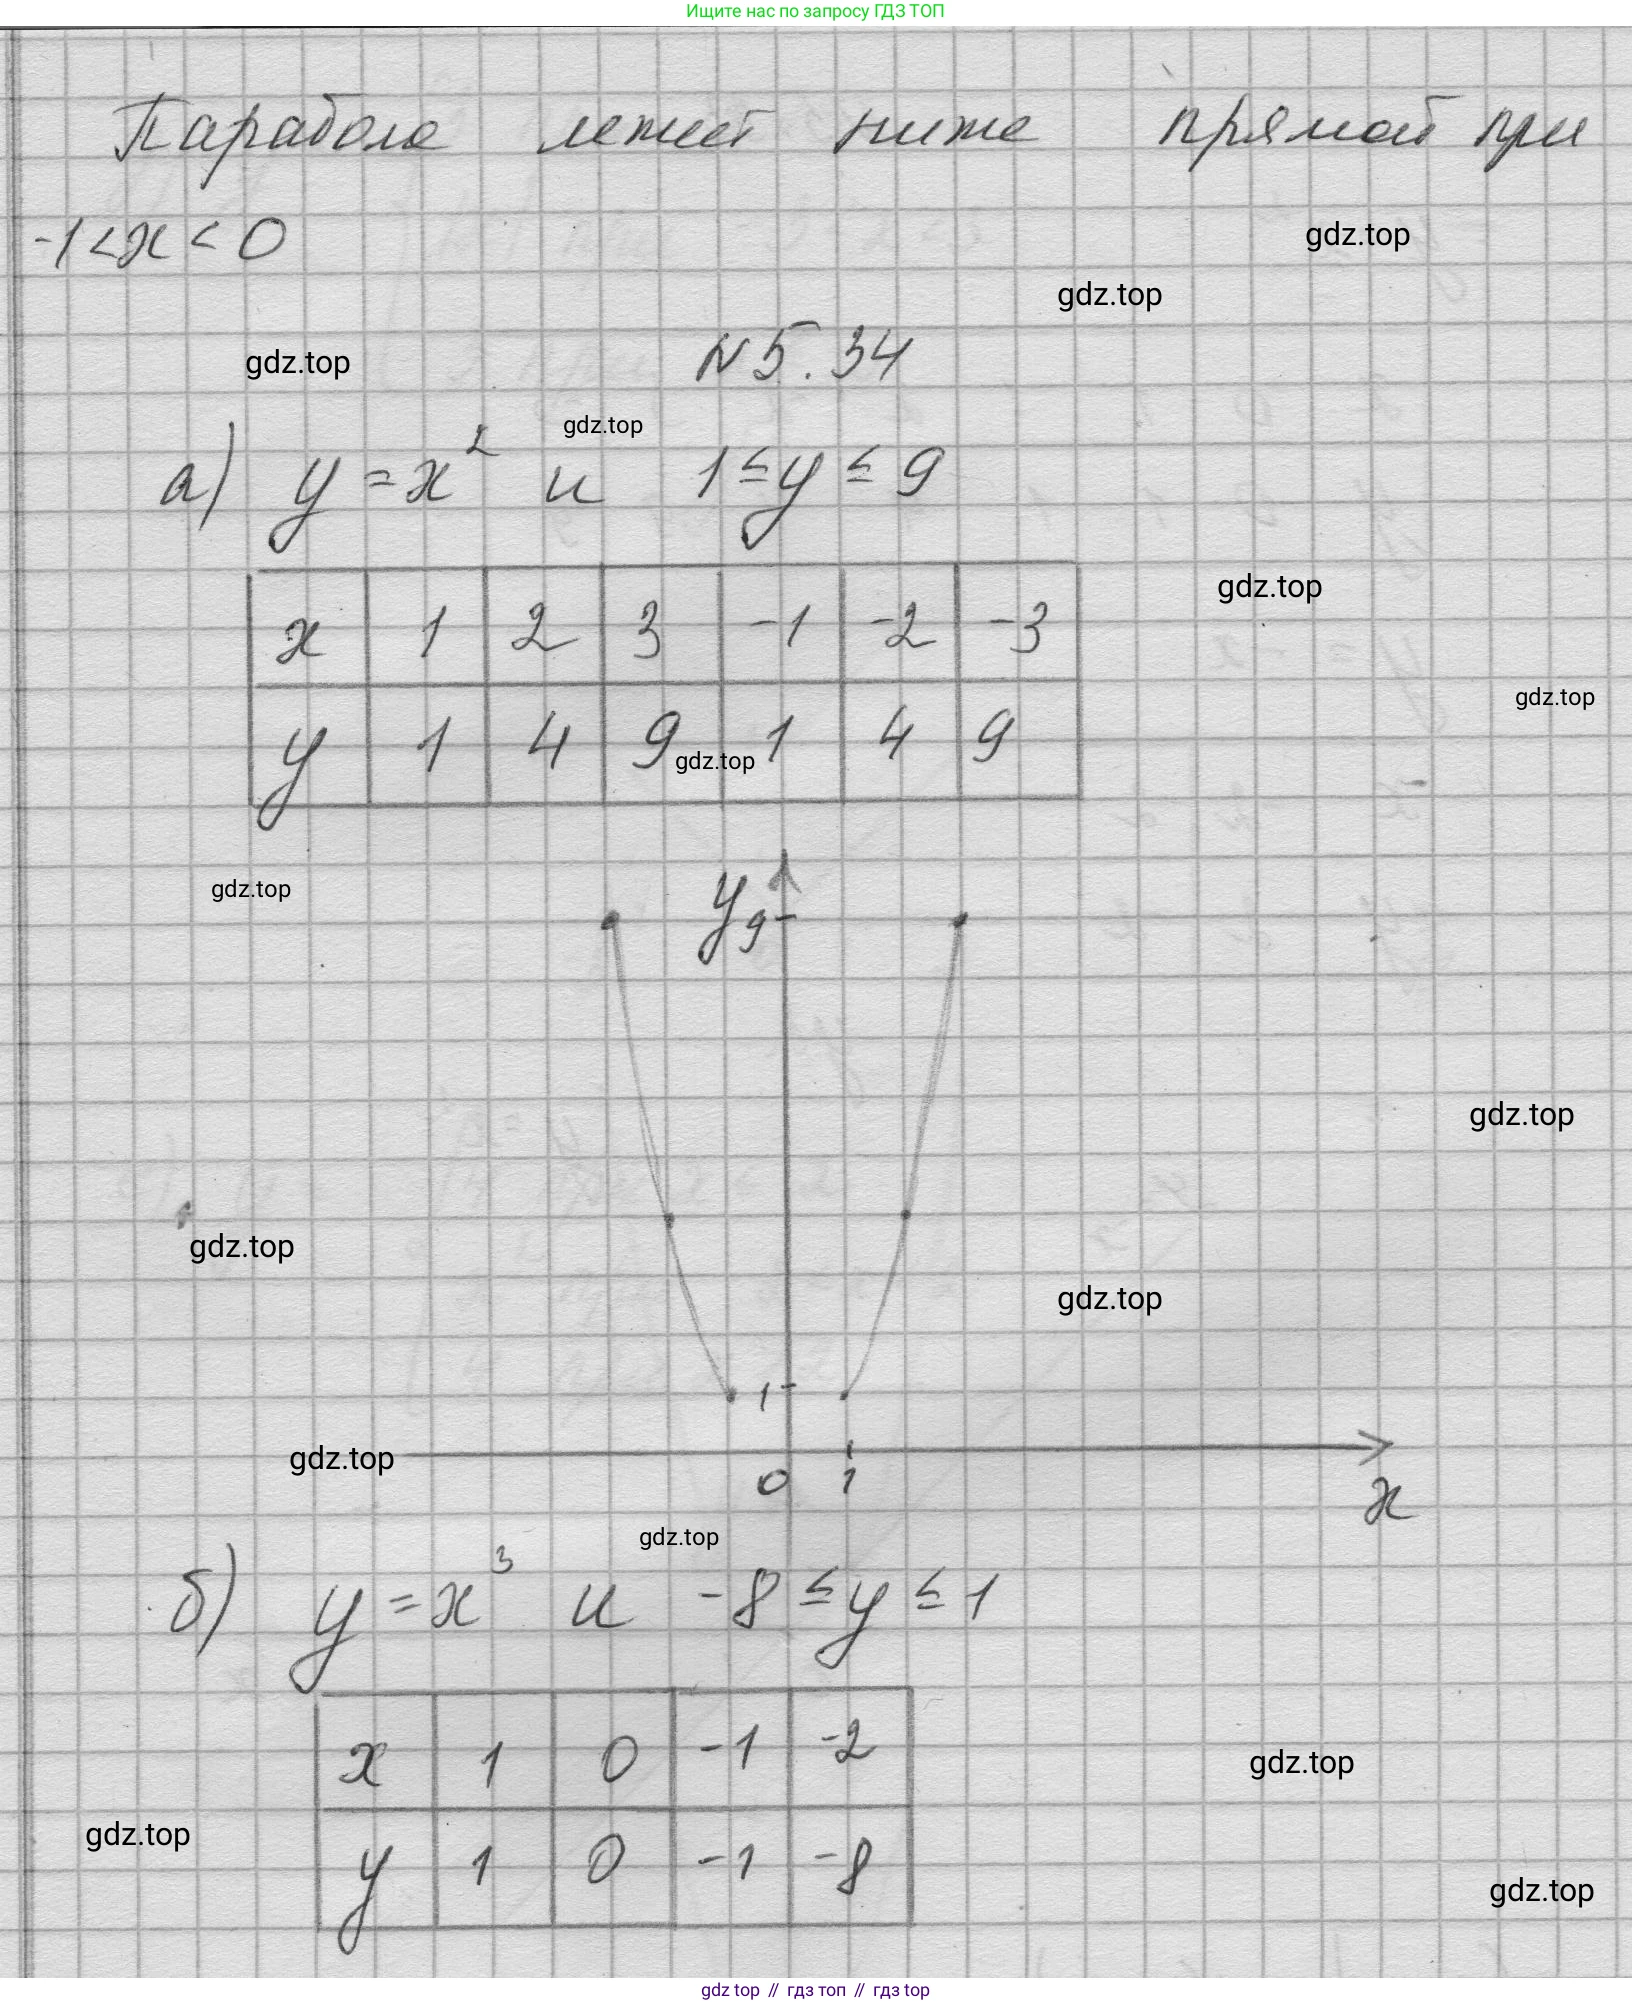 Ищите нас по запросу ГДЗ ТОП
Парабола лежит ниже прямой при
-1<x<0
gdz.top
gdz.top
№5.34
gdz.top
gdz.top
а) y=x² и 1≤y≤9
gdz.top
x 1 2 3 -1 -2 -3
gdz.top
y 1 4 9 1 4 9
gdz.top
gdz.top
y 9
gdz.top
gdz.top
gdz.top
1
gdz.top
0 1
x
gdz.top
б) y=x³ и -8≤y≤1
x 1 0 -1 -2
gdz.top
gdz.top
y 1 0 -1 -8
gdz.top
gdz top // гдз топ // гдз top